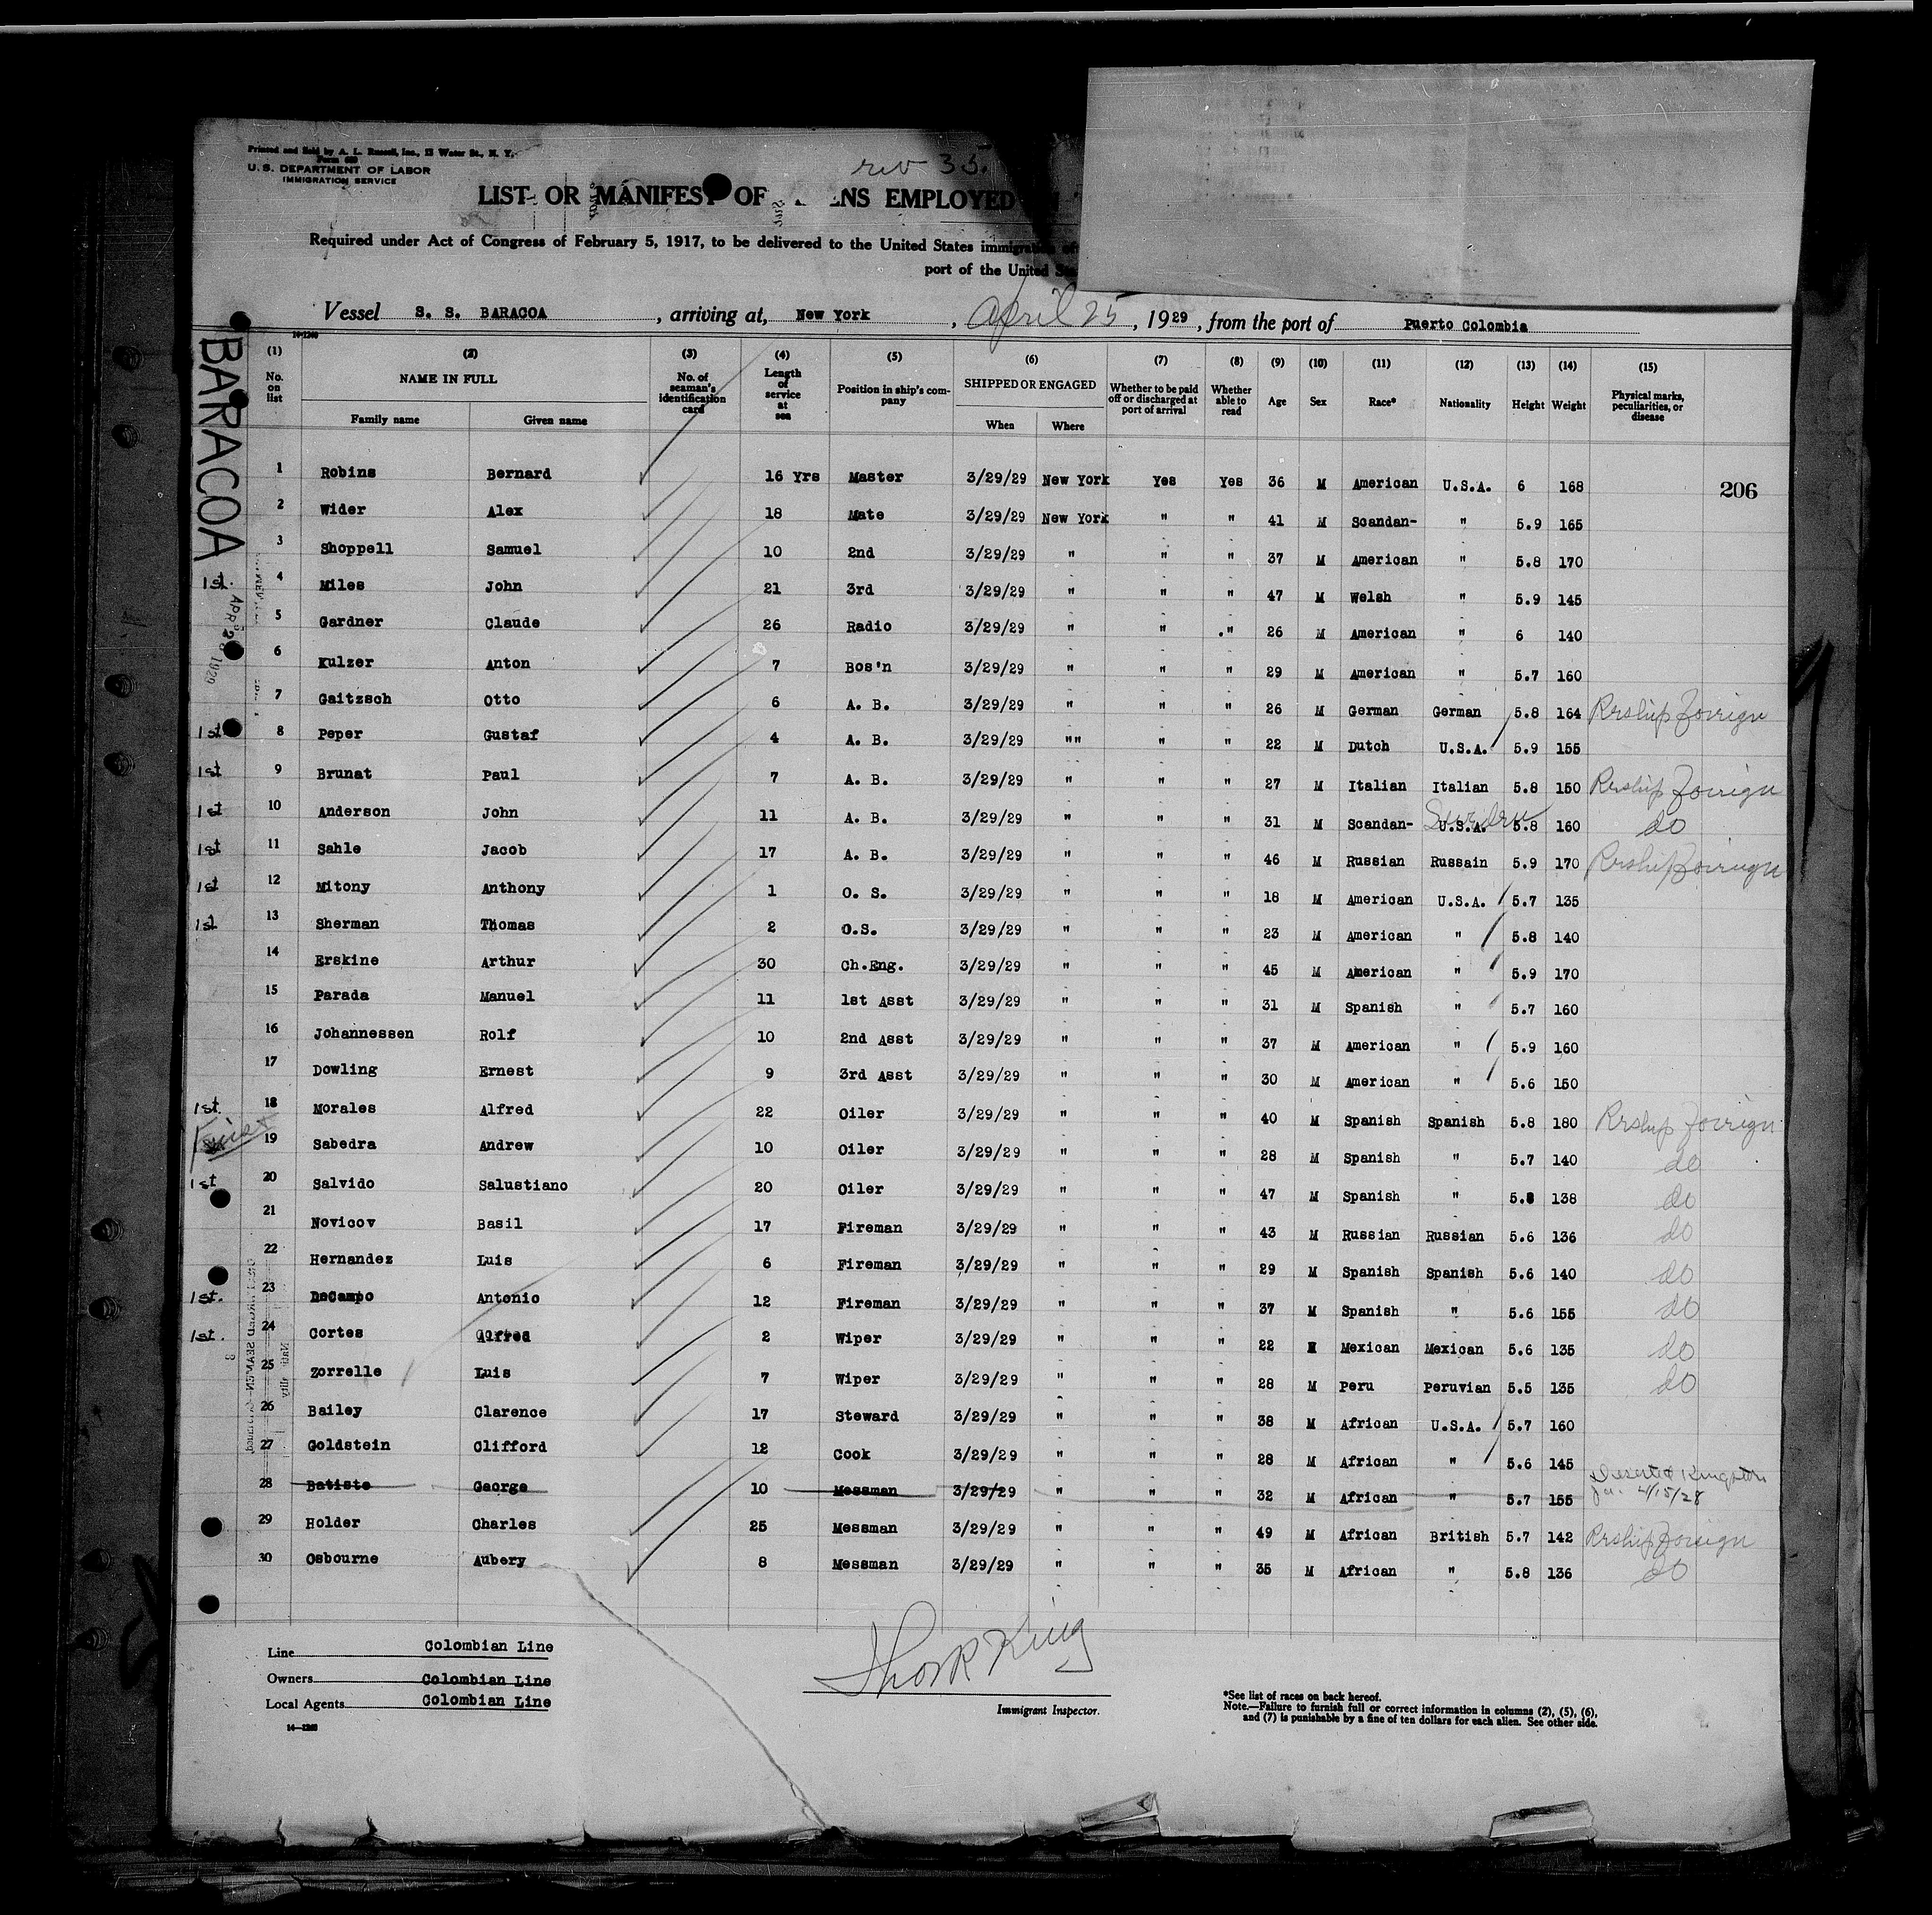 Printed and Sold by A. L. Russell, Inc., 12 Water St., N. Y.
U. S. DEPARTMENT OF LABOR
IMMIGRATION SERVICE
rev 35.
LIST OR MANIFEST OF ENS EMPLOYED
Required under Act of Congress of February 5, 1917, to be delivered to the United States immigration
port of the United
Vessel S. S. BARACOA , arriving at, New York , April 25 , 1929 , from the port of Puerto Colombia
14-1240
BARACOA
(1) (2) (3) (4) (5) (6) (7) (8) (9) (10) (11) (12) (13) (14) (15)
No. on list NAME IN FULL Family name Given name No. of seaman's identification card Length of service at sea Position in ship's company SHIPPED OR ENGAGED When Where Whether to be paid off or discharged at port of arrival Whether able to read Age Sex Race* Nationality Height Weight Physical marks, peculiarities, or disease
1 Robins Bernard 16 Yrs Master 3/29/29 New York Yes Yes 36 M American U.S.A. 6 168
206
2 Wider Alex 18 Mate 3/29/29 New York " " 41 M Scandan- " 5.9 165
3 Shoppell Samuel 10 2nd 3/29/29 " " " 37 M American " 5.8 170
1st. 4 Miles John 21 3rd 3/29/29 " " " 47 M Welsh " 5.9 145
5 Gardner Claude 26 Radio 3/29/29 " " " 26 M American " 6 140
6 Kulzer Anton 7 Bos'n 3/29/29 " " " 29 M American " 5.7 160
7 Gaitzsch Otto 6 A. B. 3/29/29 " " " 26 M German German 5.8 164 Reship Foreign
1st 8 Peper Gustaf 4 A. B. 3/29/29 "" " " 22 M Dutch U.S.A. 5.9 155
1st 9 Brunat Paul 7 A. B. 3/29/29 " " " 27 M Italian Italian 5.8 150 Reship Foreign
1st 10 Anderson John 11 A. B. 3/29/29 " " " 31 M Scandan- U.S.A. Sweden 5.8 160 do
1st 11 Sahle Jacob 17 A. B. 3/29/29 " " " 46 M Russian Russain 5.9 170 Reship Foreign
1st 12 Mitony Anthony 1 O. S. 3/29/29 " " " 18 M American U.S.A. 5.7 135
1st 13 Sherman Thomas 2 O.S. 3/29/29 " " " 23 M American " 5.8 140
14 Erskine Arthur 30 Ch.Eng. 3/29/29 " " " 45 M American " 5.9 170
15 Parada Manuel 11 1st Asst 3/29/29 " " " 31 M Spanish " 5.7 160
16 Johannessen Rolf 10 2nd Asst 3/29/29 " " " 37 M American " 5.9 160
17 Dowling Ernest 9 3rd Asst 3/29/29 " " " 30 M American " 5.6 150
1st. 18 Morales Alfred 22 Oiler 3/29/29 " " " 40 M Spanish Spanish 5.8 180 Reship Foreign
19 Sabedra Andrew 10 Oiler 3/29/29 " " " 28 M Spanish " 5.7 140 do
1st 20 Salvido Salustiano 20 Oiler 3/29/29 " " " 47 M Spanish " 5.8 138 do
21 Novicov Basil 17 Fireman 3/29/29 " " " 43 M Russian Russian 5.6 136 do
22 Hernandez Luis 6 Fireman 3/29/29 " " " 29 M Spanish Spanish 5.6 140 do
1st. 23 DeCampo Antonio 12 Fireman 3/29/29 " " " 37 M Spanish " 5.6 155 do
1st. 24 Cortes Alfred 2 Wiper 3/29/29 " " " 22 M Mexican Mexican 5.6 135 do
25 Zorrelle Luis 7 Wiper 3/29/29 " " " 28 M Peru Peruvian 5.5 135 do
26 Bailey Clarence 17 Steward 3/29/29 " " " 38 M African U.S.A. 5.7 160
27 Goldstein Clifford 12 Cook 3/29/29 " " " 28 M African " 5.6 145
28 Batiste George 10 Messman 3/29/29 " " " 32 M African " 5.7 155 Deserted Kingston Ja. 4/15/28
29 Holder Charles 25 Messman 3/29/29 " " " 49 M African British 5.7 142 Reship Foreign
30 Osbourne Aubery 8 Messman 3/29/29 " " " 35 M African " 5.8 136 do
Line Colombian Line
Owners Colombian Line
Local Agents Colombian Line
14-1240
Thos R King
Immigrant Inspector.
*See list of races on back hereof.
Note.—Failure to furnish full or correct information in columns (2), (5), (6),
and (7) is punishable by a fine of ten dollars for each alien. See other side.